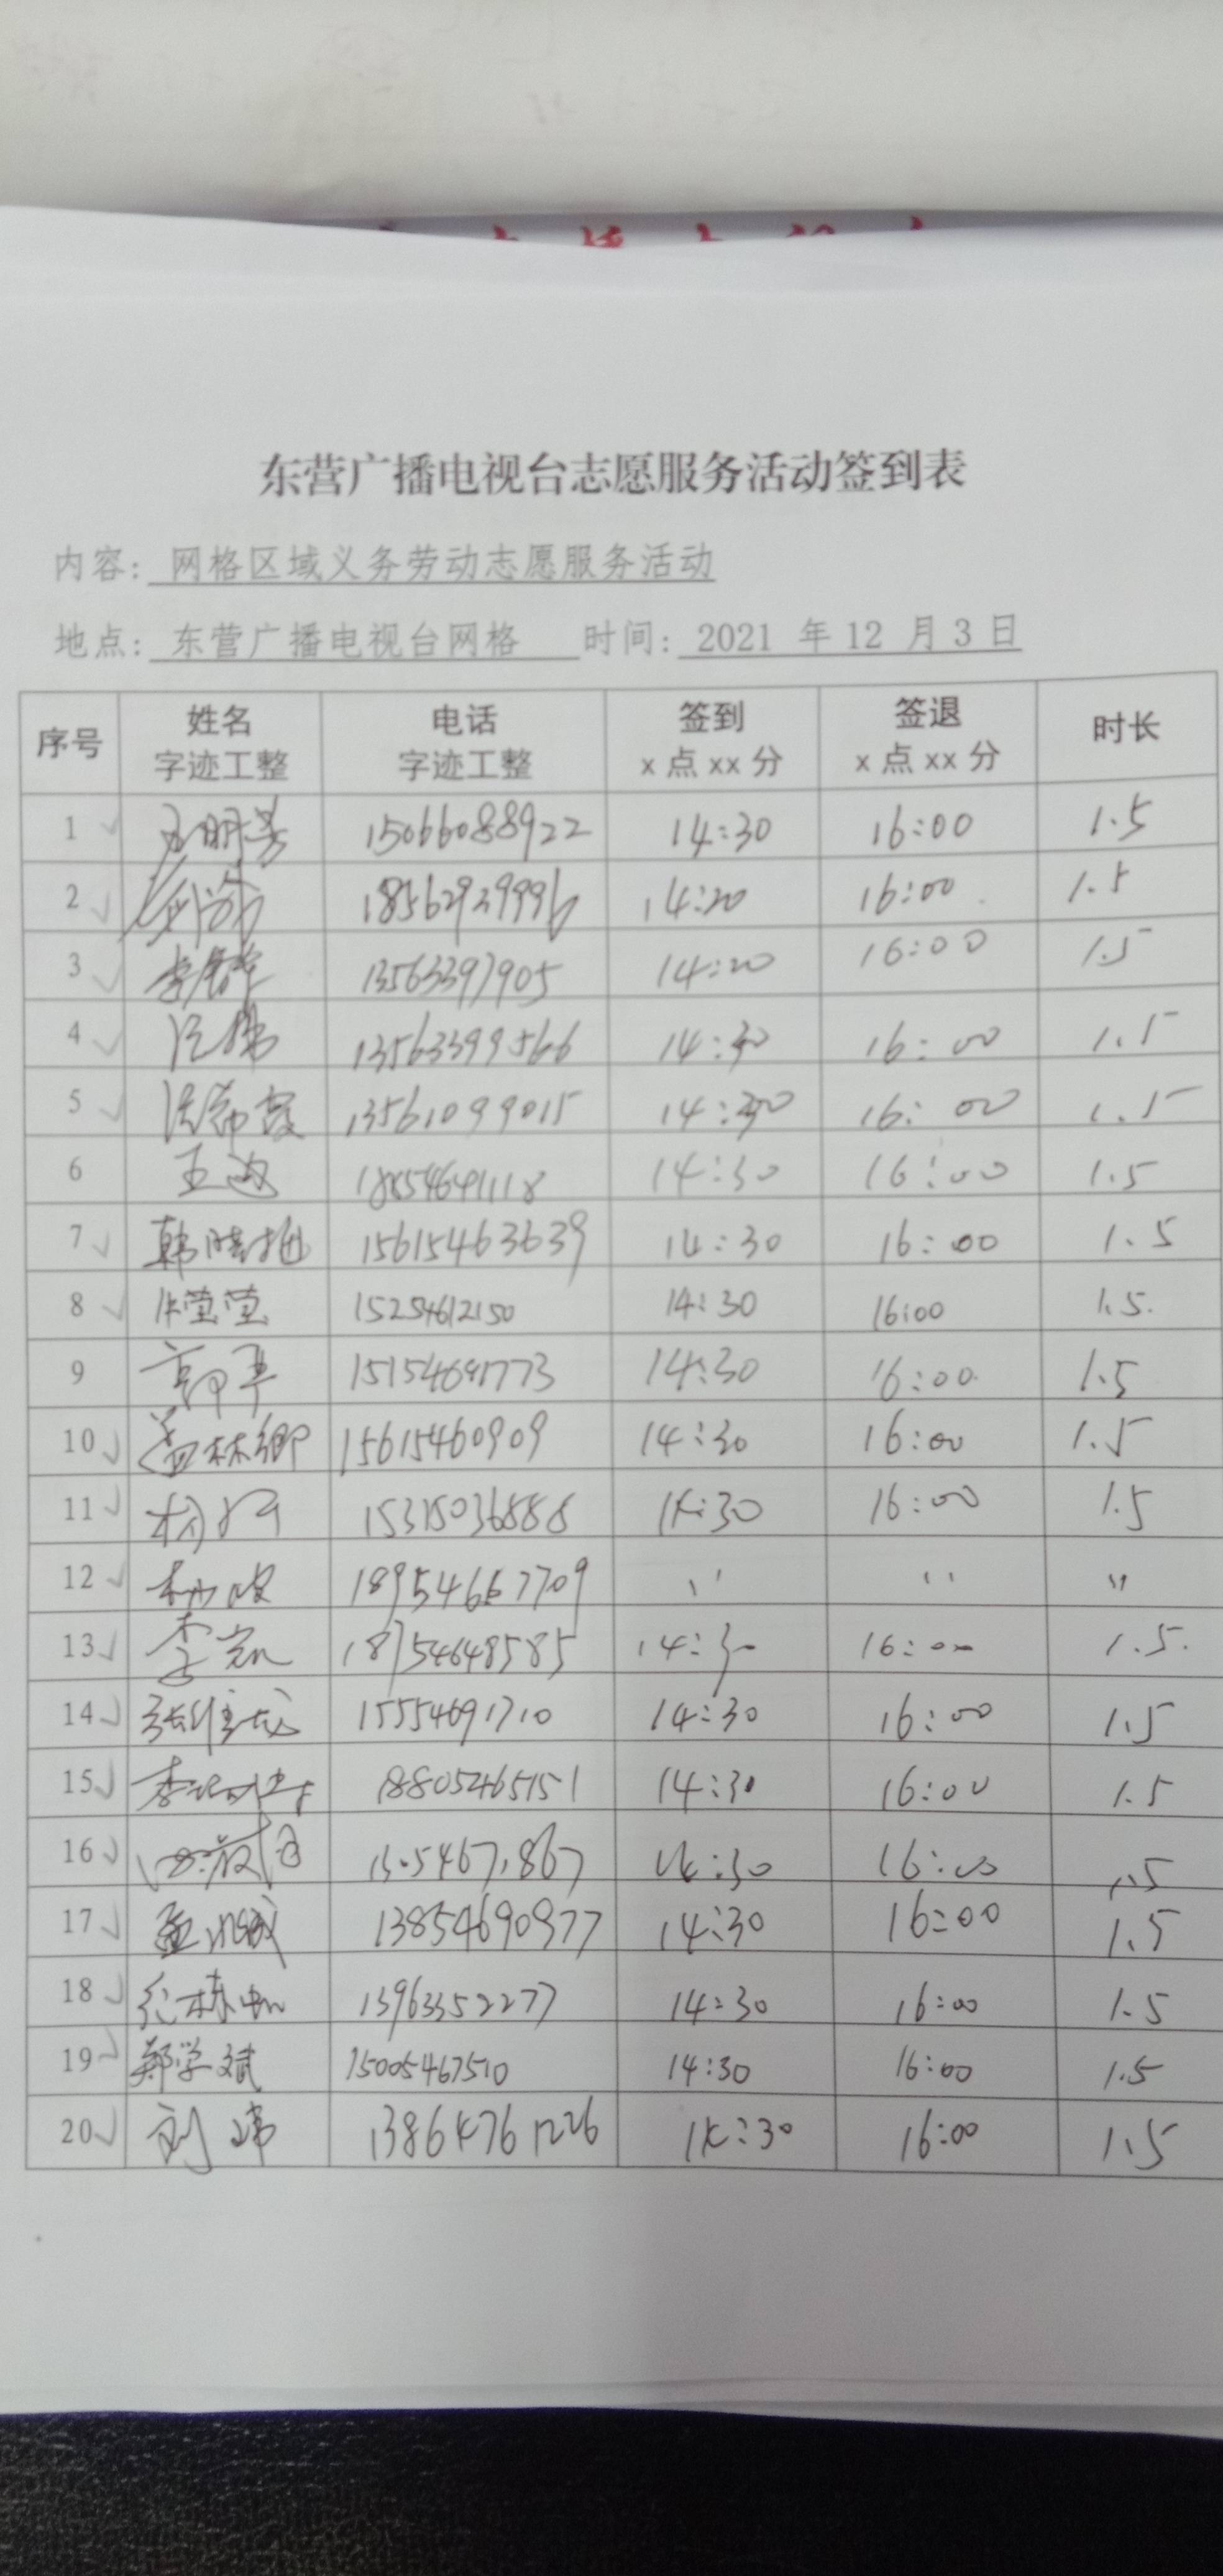 东营广播电视台志愿服务活动签到表
内容: 网格区域义务劳动志愿服务活动
地点: 东营广播电视台网格 时间: 2021 年 12 月 3 日
序号 姓名 字迹工整 电话 字迹工整 签到 x 点 xx 分 签退 x 点 xx 分 时长
1 15066088922 14:30 16:00 1.5
2 18562939996 14:20 16:00 1.5
3 13563397905 14:20 16:00 1.5
4 13563399566 14:30 16:00 1.5
5 13561099015 14:30 16:00 1.5
6 王 14:30 16:00 1.5
7 韩晓旭 15615463639 14:30 16:00 1.5
8 莹莹 15254612150 14:30 16:00 1.5.
9 14:30 16:00 1.5
10 盖林乡 15615460909 14:30 16:00 1.5
11 15315036888 14:30 16:00 1.5
12 18954667709 〃 〃 〃
13 李凯 18754648585 14:30 16:00 1.5.
14 15554691710 14:30 16:00 1.5
15 李 18805465151 14:30 16:00 1.5
16 14:30 16:00 1.5
17 孟 13854690977 14:30 16:00 1.5
18 13963352277 14:30 16:00 1.5
19 郑学斌 15005467510 14:30 16:00 1.5
20 刘玮 13864761226 14:30 16:00 1.5